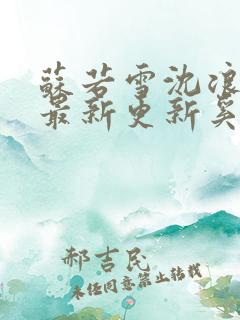 蘇若雪沈浪
最新更新奚
郝吉民
未经同意禁止转载